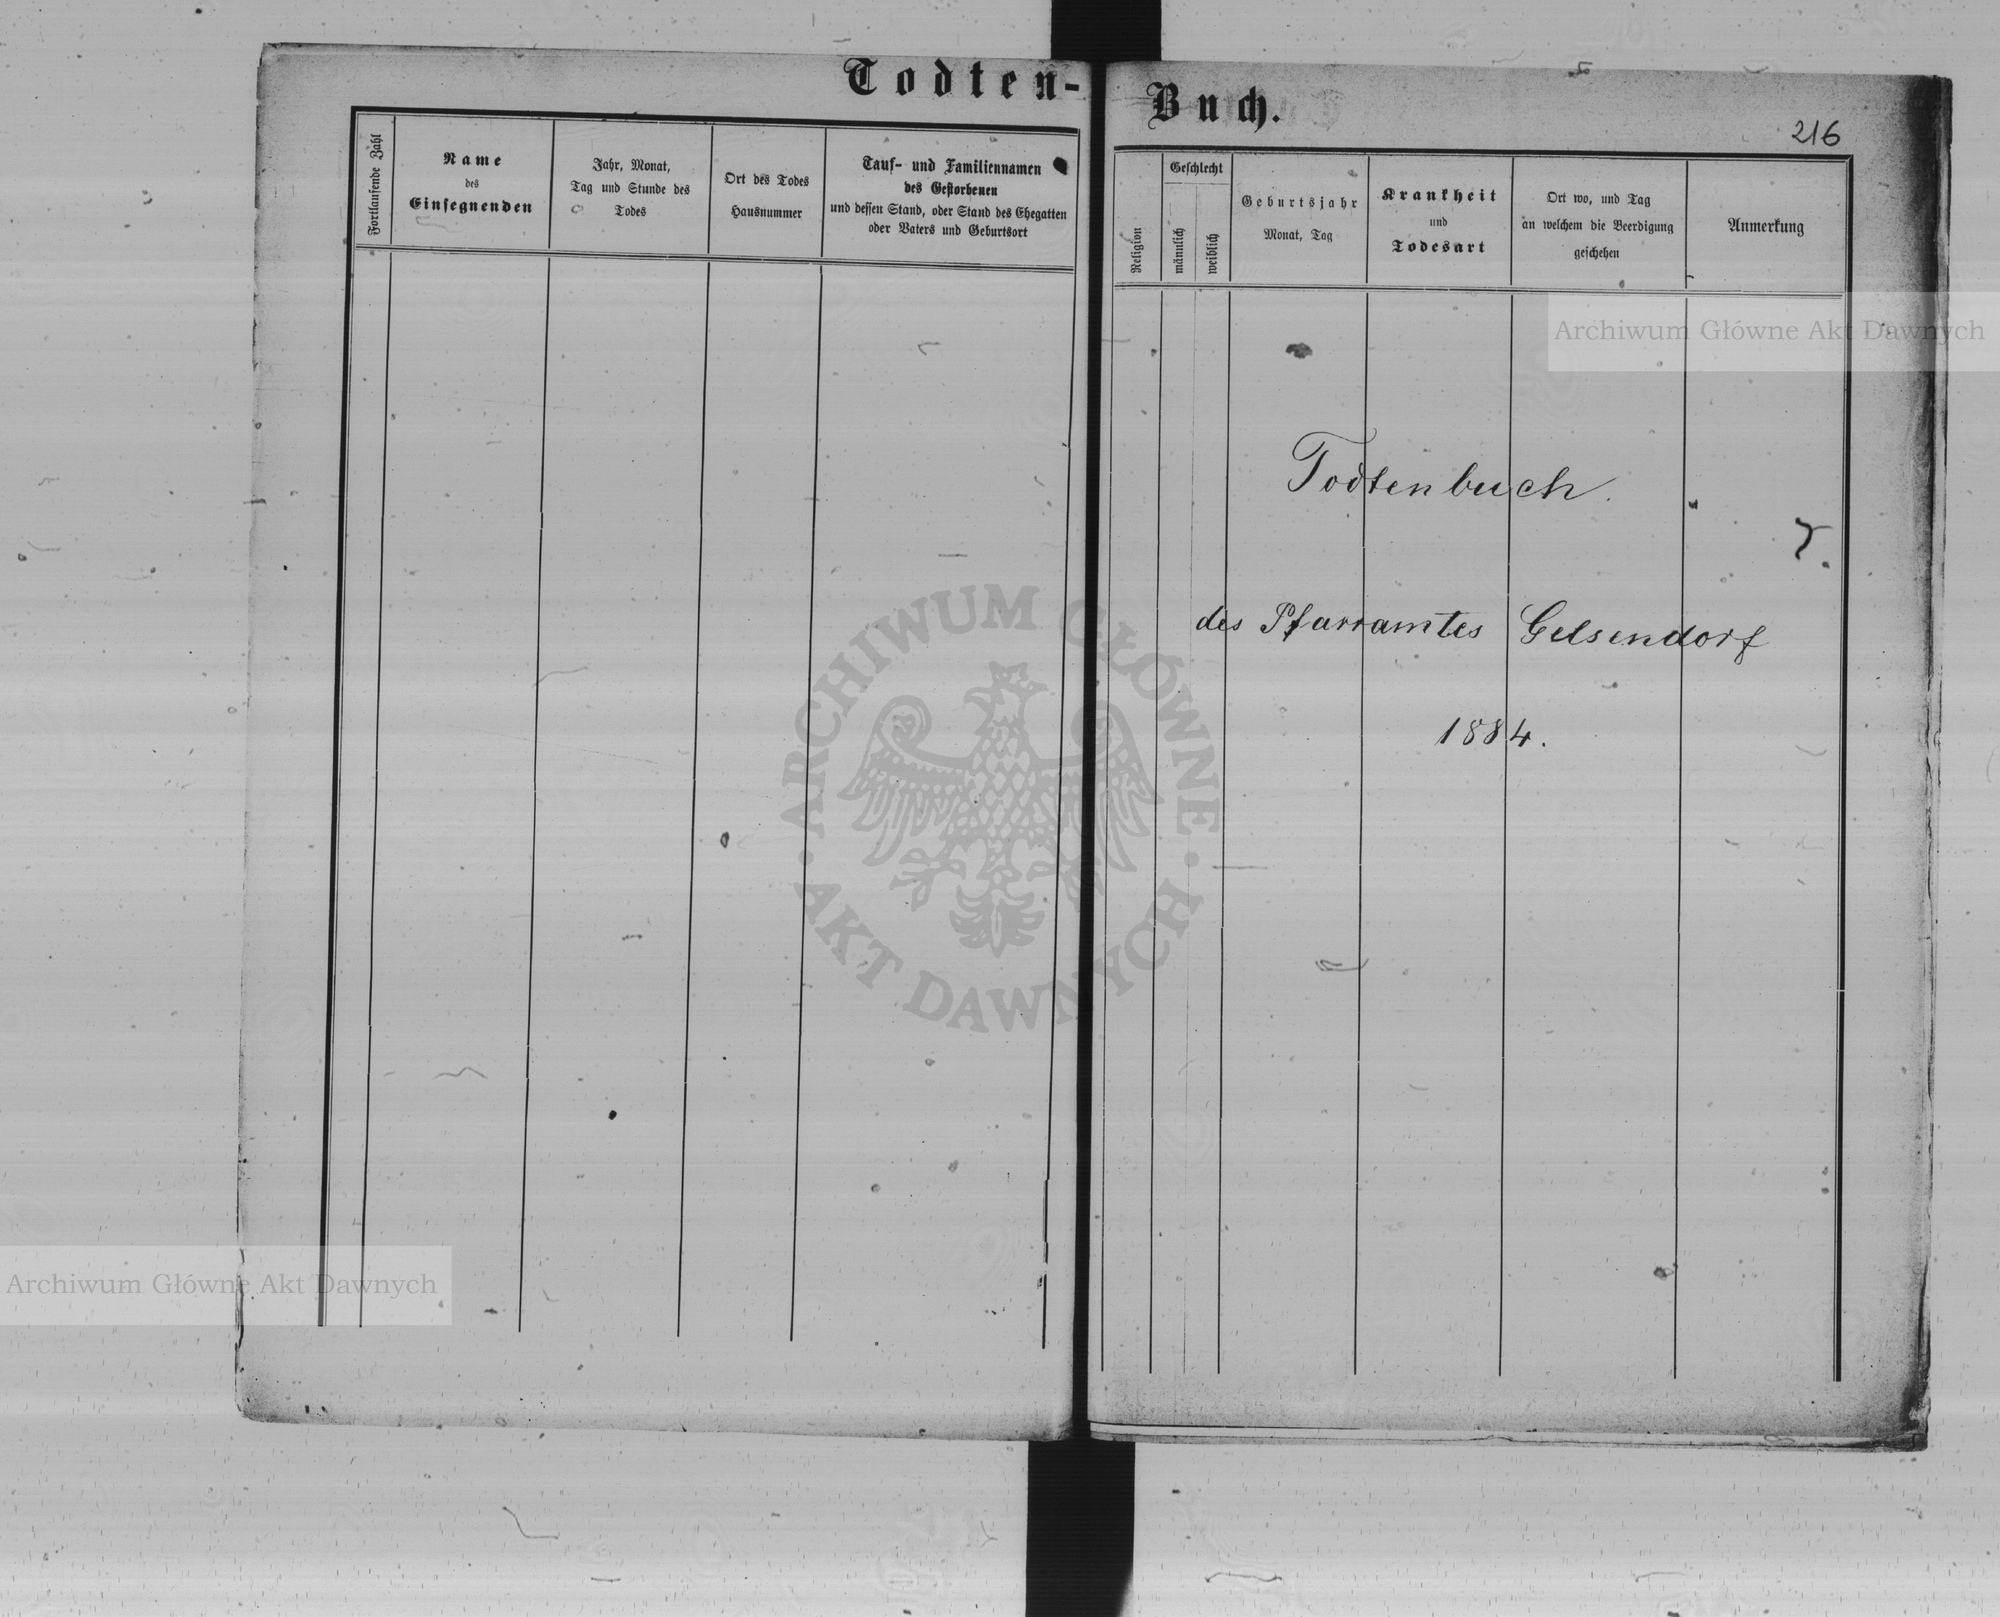 Todten-
Buch.
216
Fortlaufende Zahl
Name
des
Einsegnenden
Jahr, Monat,
Tag und Stunde des
Todes
Ort des Todes
Hausnummer
Tauf- und Familiennamen
des Gestorbenen
und dessen Stand, oder Stand des Ehegatten
oder Vaters und Geburtsort
Religion
Geschlecht
männlich
weiblich
Geburtsjahr
Monat, Tag
Krankheit
und
Todesart
Ort wo, und Tag
an welchem die Beerdigung
geschehen
Anmerkung
Archiwum Główne Akt Dawnych
Todtenbuch.
des Pfarramtes Gelsendorf
1884.
ARCHIWUM GŁÓWNE
AKT DAWNYCH
Archiwum Główne Akt Dawnych